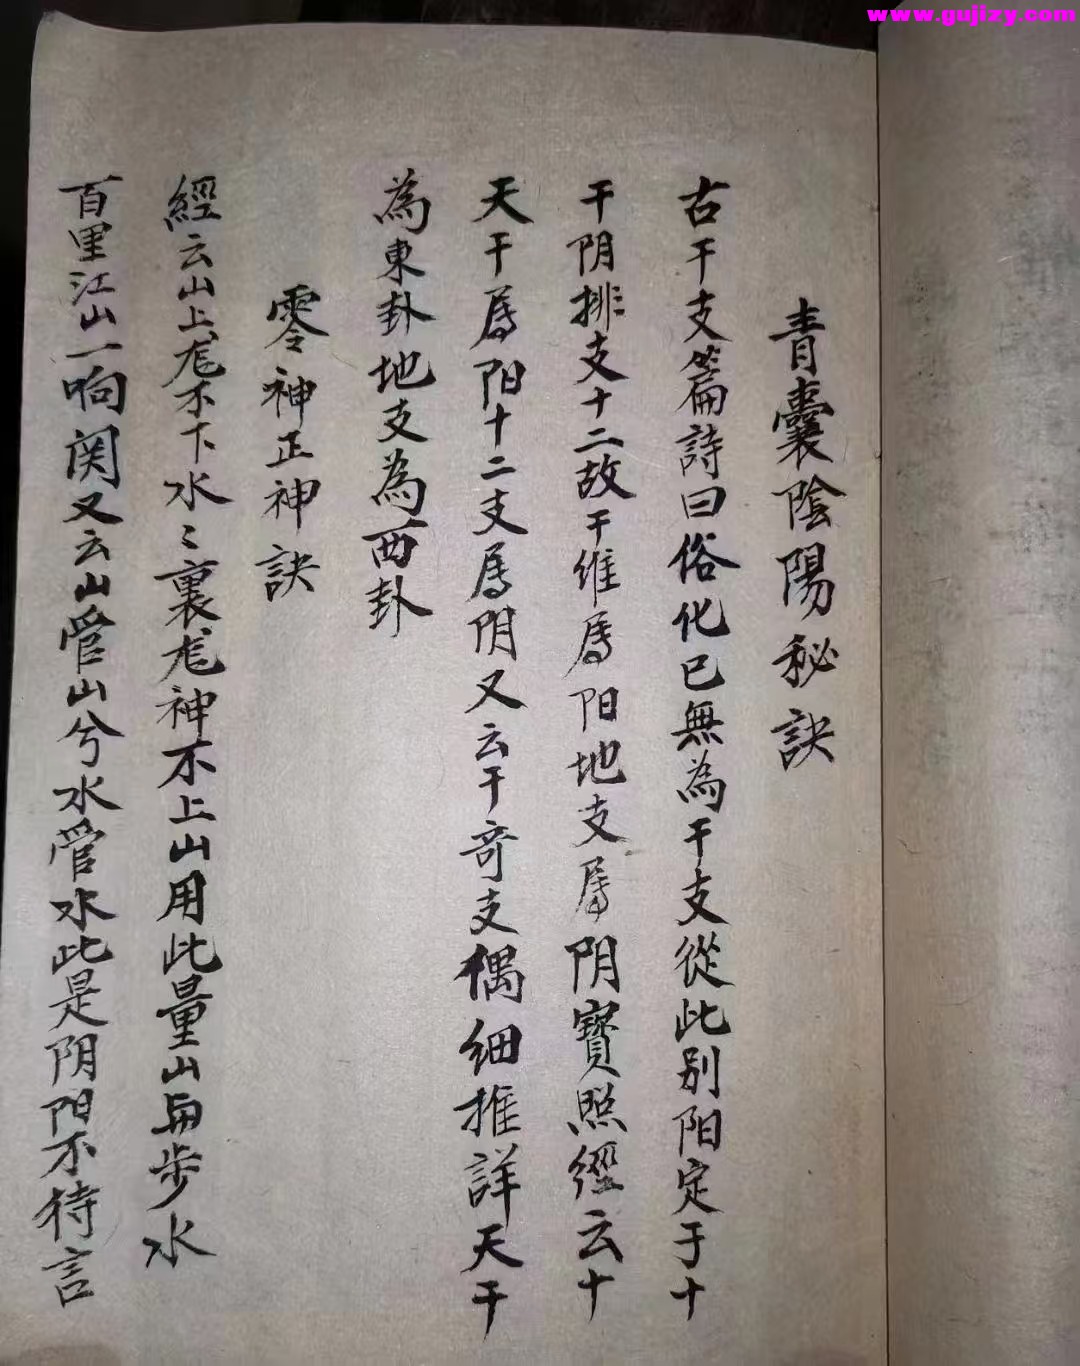 www.gujizy.com
青囊陰陽秘訣
古干支篇詩曰俗化已無為干支從此別阳定于十
干阴排支十二故干维属阳地支属阴寶照經云十
天干属阳十二支属阴又云干竒支偶细推詳天干
為東卦地支為西卦
零神正神訣
經云山上龙不下水〻裏龙神不上山用此量山与步水
百里江山一响関又云山管山兮水管水此是阴阳不待言